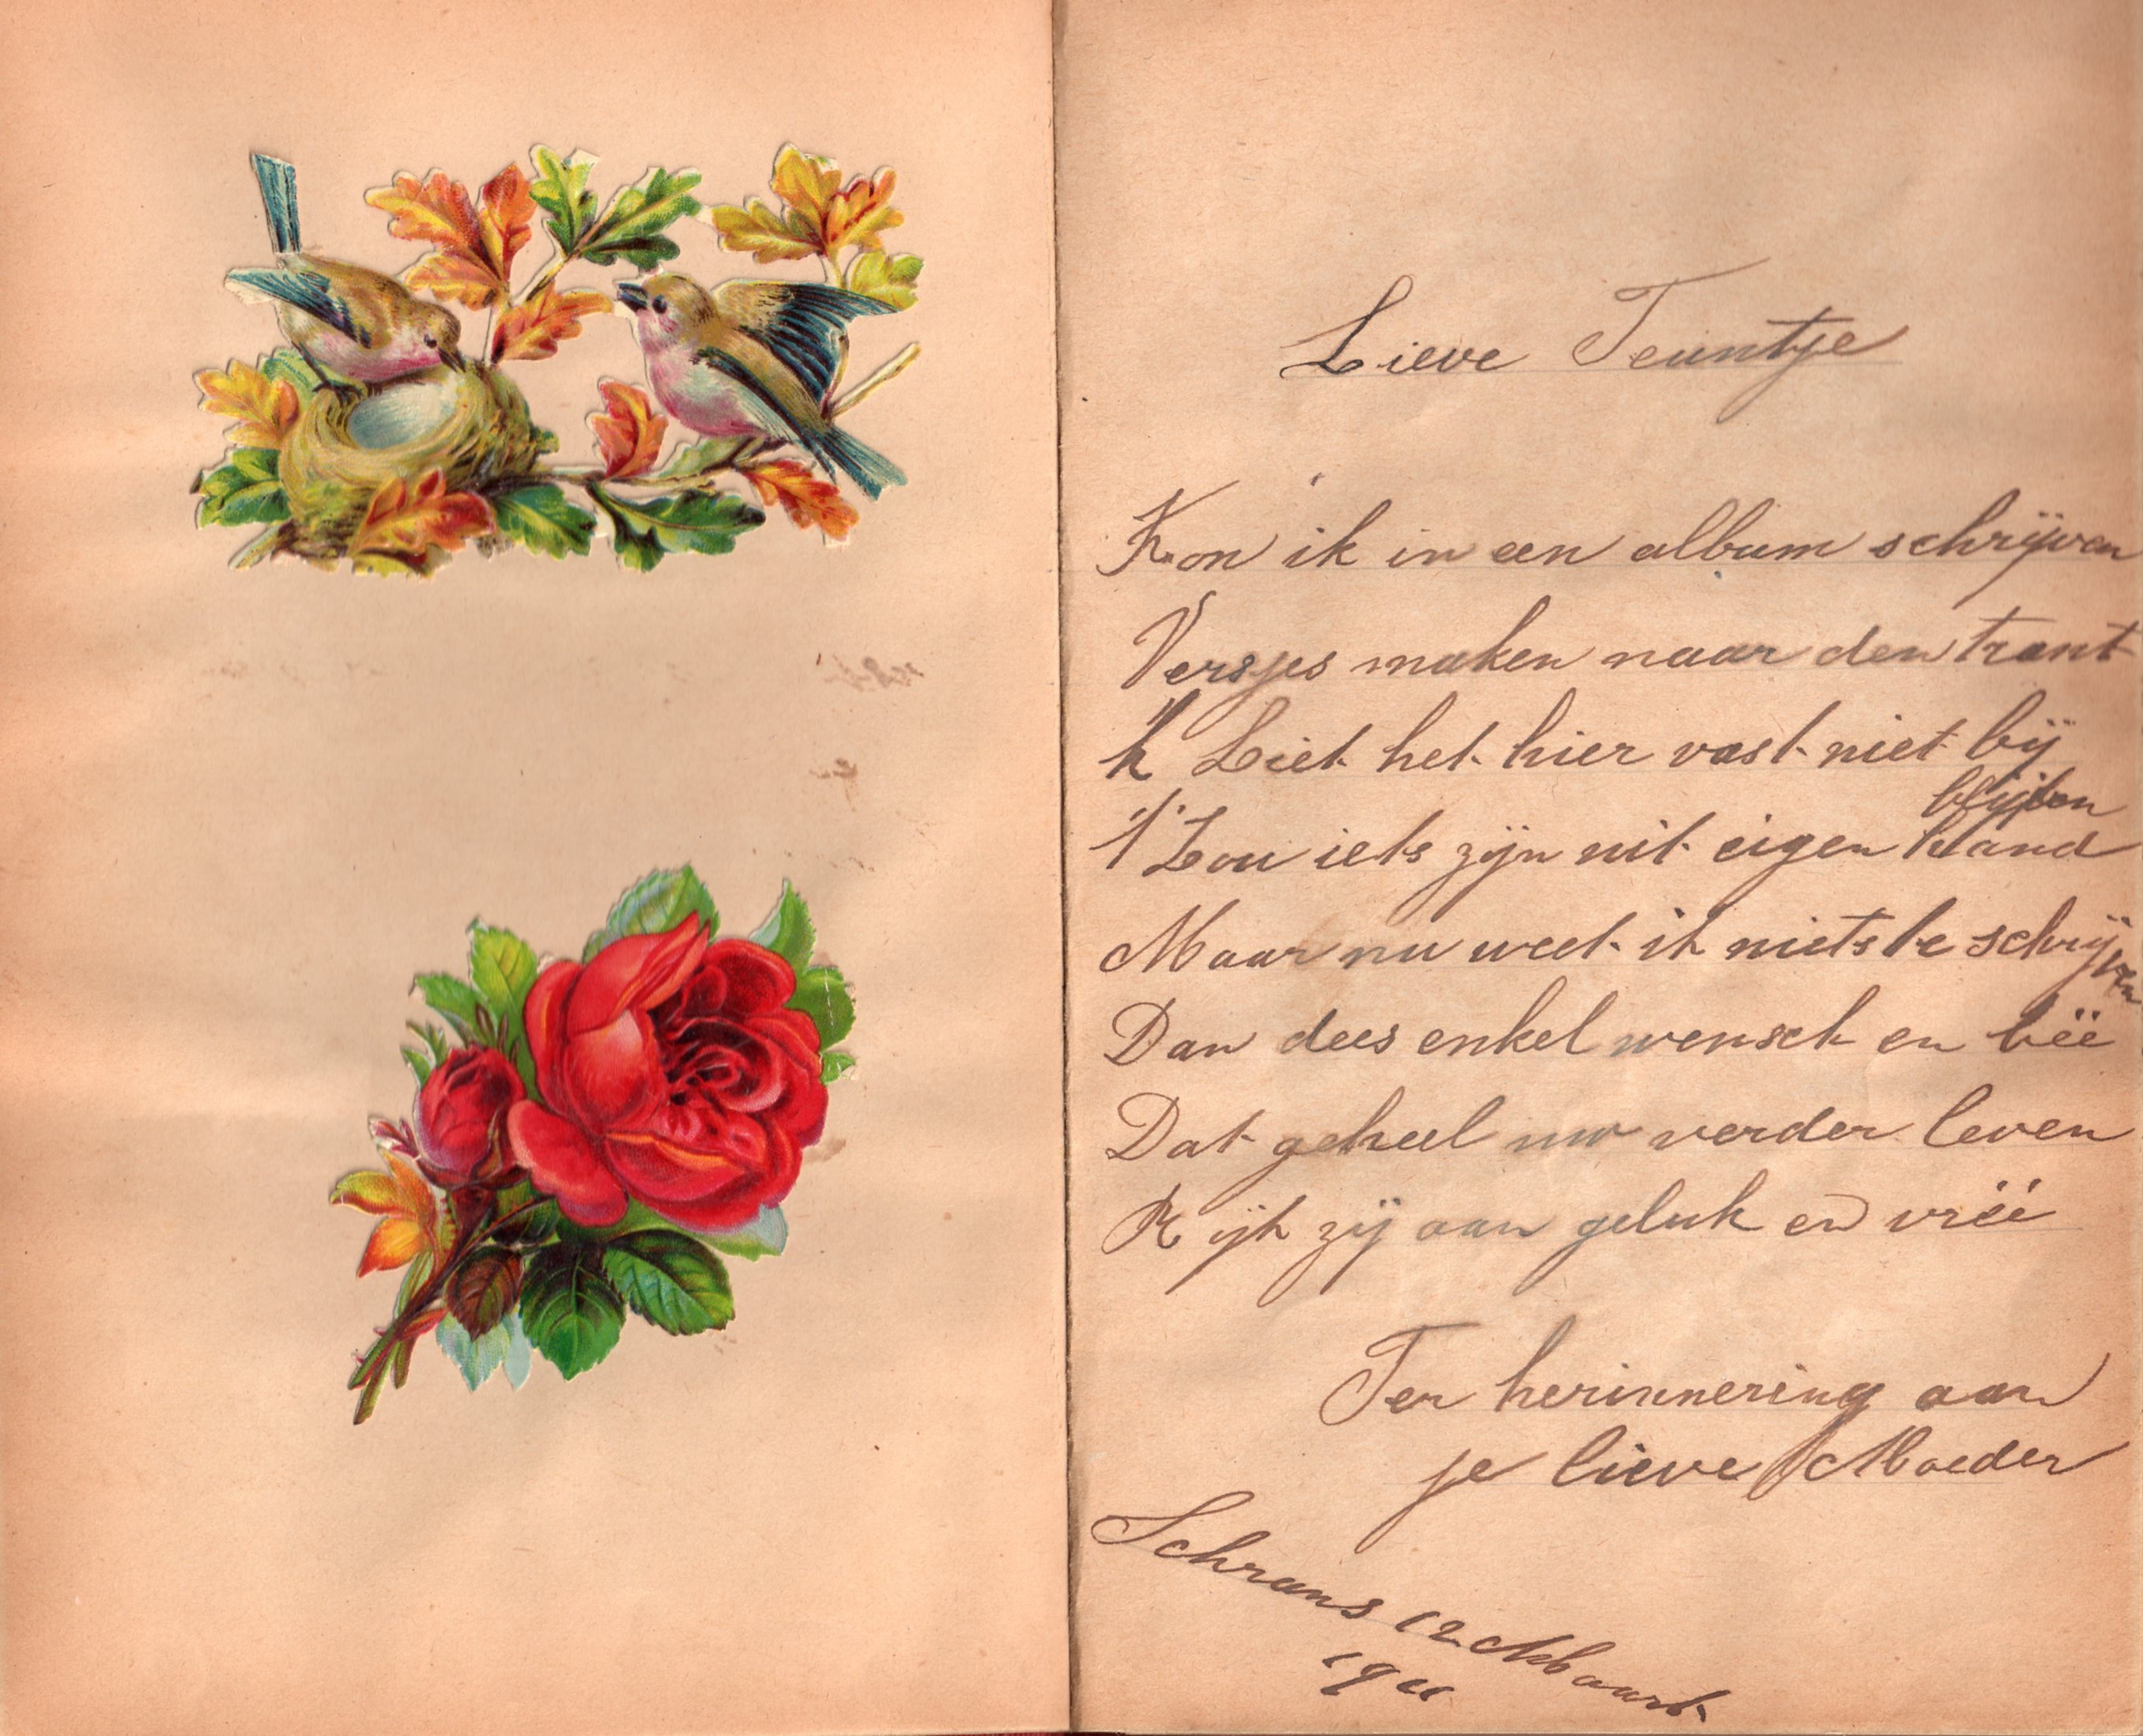 Lieve Teuntje
Kon ik in een album schrijven
Versjes maken naar den trant
'k Liet het hier vast niet bij
blijven
't Zou iets zijn uit eigen hand
Maar nu weet ik niets te schrijven
Dan dees enkel wensch en beë
Dat geheel uw verder leven
Rijk zij aan geluk en vreé
Ter herinnering aan
je lieve Moeder
Schrans 12 Maart
1911